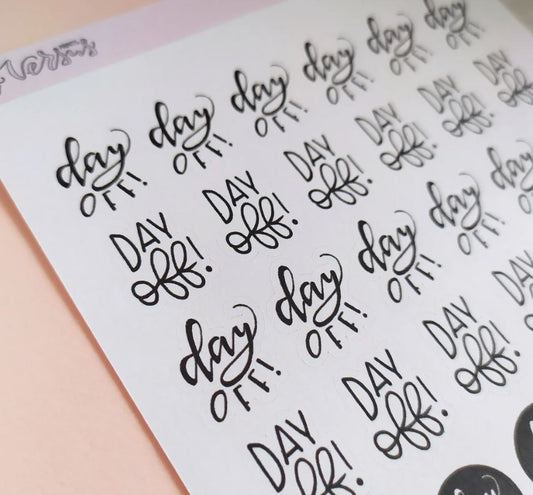 Versus
day day day day day day
OFF! OFF! OFF! OFF! OFF! OFF!
DAY DAY DAY DAY DAY DAY
off! off! off! off! off! off!
day day day day day
OFF! OFF! OFF! OFF! OFF!
DAY DAY DAY DAY
off! off! off! off!